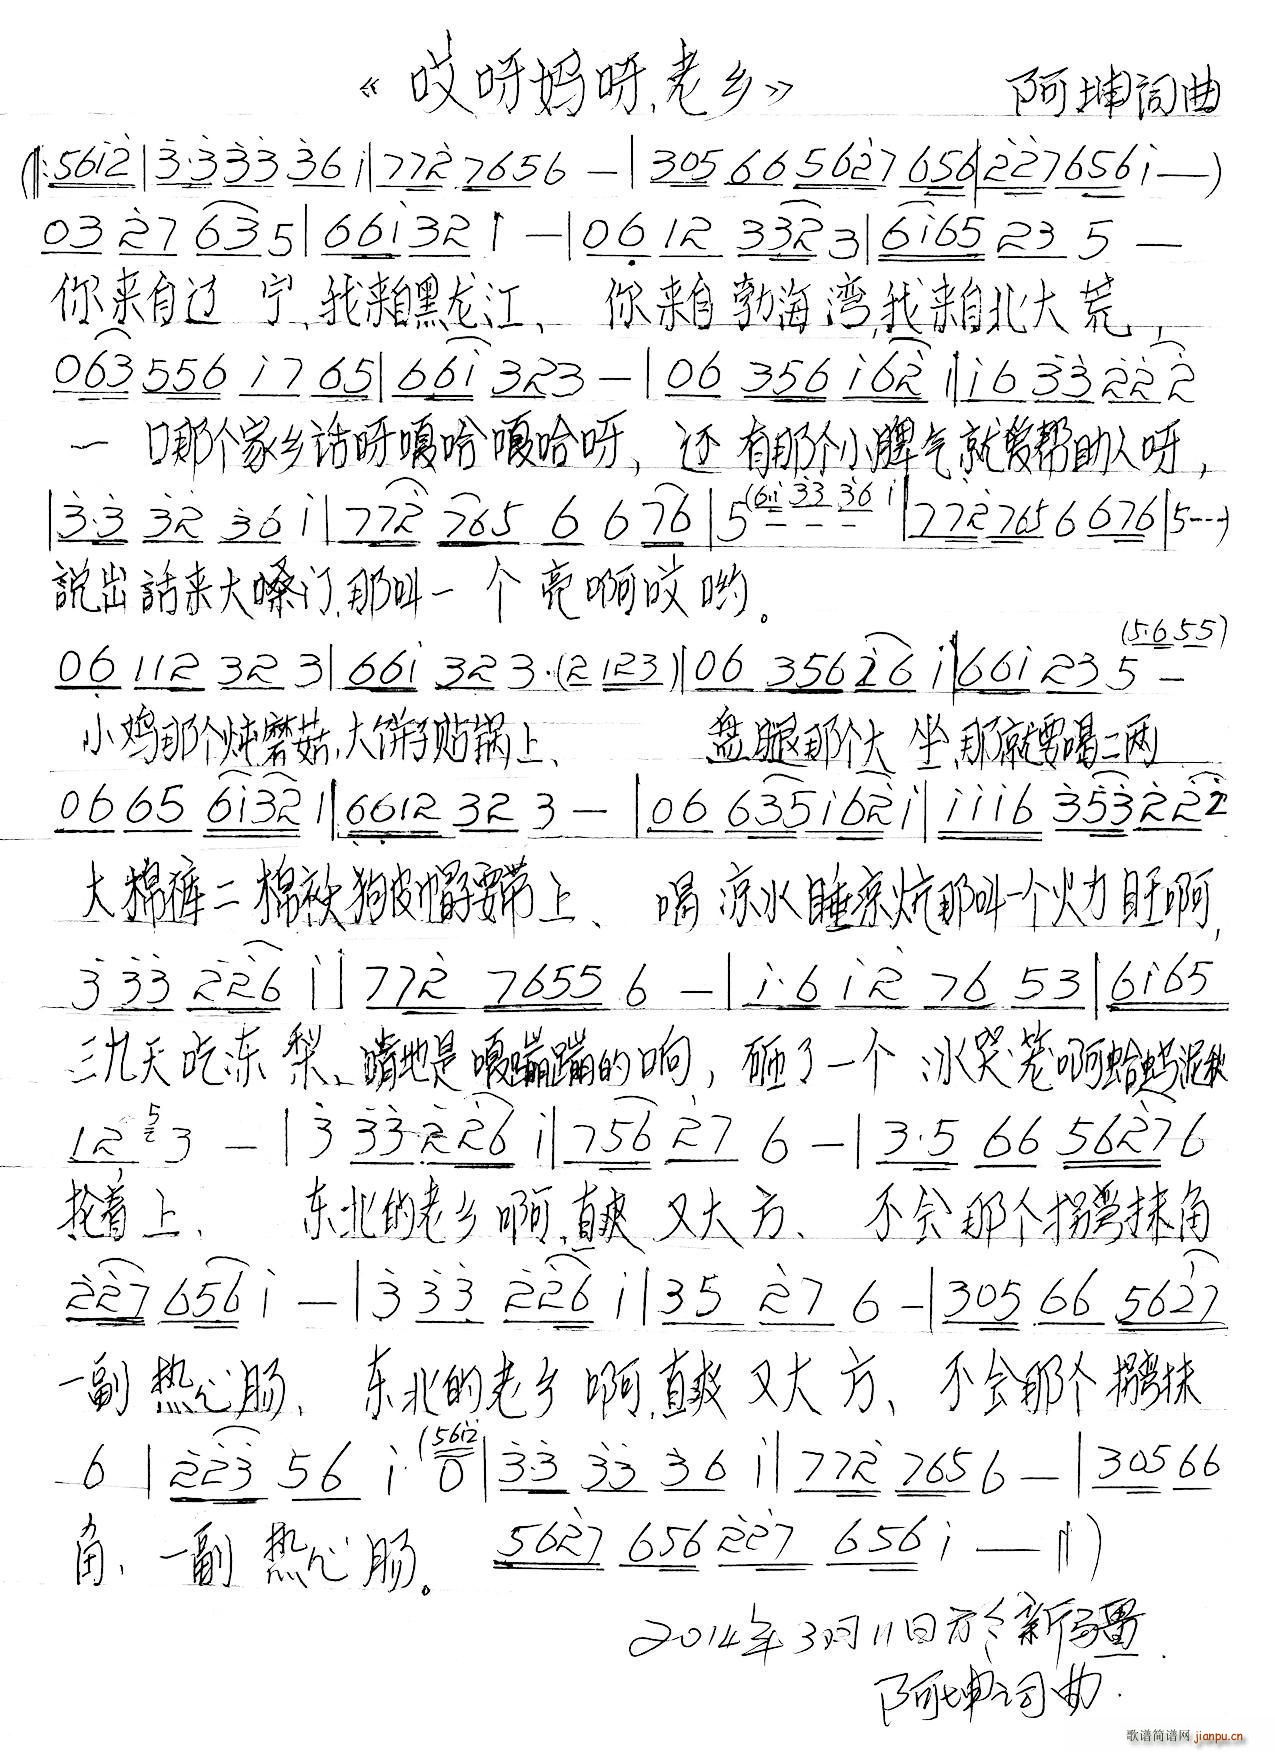 《哎呀妈呀,老乡》 阿坤词曲
(‖:5612|3·333 36 1|772 7656 —|305 66 5627 656|227 656 1 —)
03 27 635|661321 —|06 12 3323|6165 23 5 —
你来自辽宁,我来自黑龙江、你来自渤海湾,我来自北大荒,
063 556 17 65|661 323 —|06 356 162 1|16 33 22 2
一口那个家乡话呀嘎哈嘎哈呀,还有那个小脾气就爱帮助人呀,
|3·3 32 36 1|772 765 6 676|5(61 33 36 1|772 765 6 676|5---)
説出話来大嗓门,那叫一个亮啊哎哟。
(5·655)
06 112 32 3|661 323·(2 123)|06 356 26 1|661 23 5 —
小鸡那个炖蘑菇,大饼子贴锅上、盘腿那个大坐,那就要喝二两
06 65 6132 1|6612 32 3 —|06 635 162 1|1116 353 22 2
大棉裤二棉袄狗皮帽子要带上、喝凉水睡凉炕那叫一个火力旺啊,
3 33 226 1|772 7655 6 —|1·6 12 76 53|6165
三九天吃冻梨、 地是嘎蹦蹦的响,砸了一个冰哭笼啊蛤蟆泥秋
12 3 —|3 33 226 1|756 27 6 —|3·5 66 5627 6
抢着上、东北的老乡啊,直爽又大方、不会那个拐弯抹角
227 656 1 —|3 33 226 1|35 27 6 —|305 66 5627
一副热心肠、东北的老乡啊,直爽又大方、不会那个拐弯抹
6|223 56 1·(5612 0|3·3 33 36 1|772 7656 —|305 66
角、一副热心肠。 5627 656 227 656 1 — ‖)
2014年3月11日于新疆
阿坤词曲.
歌谱简谱网 jianpu.cn